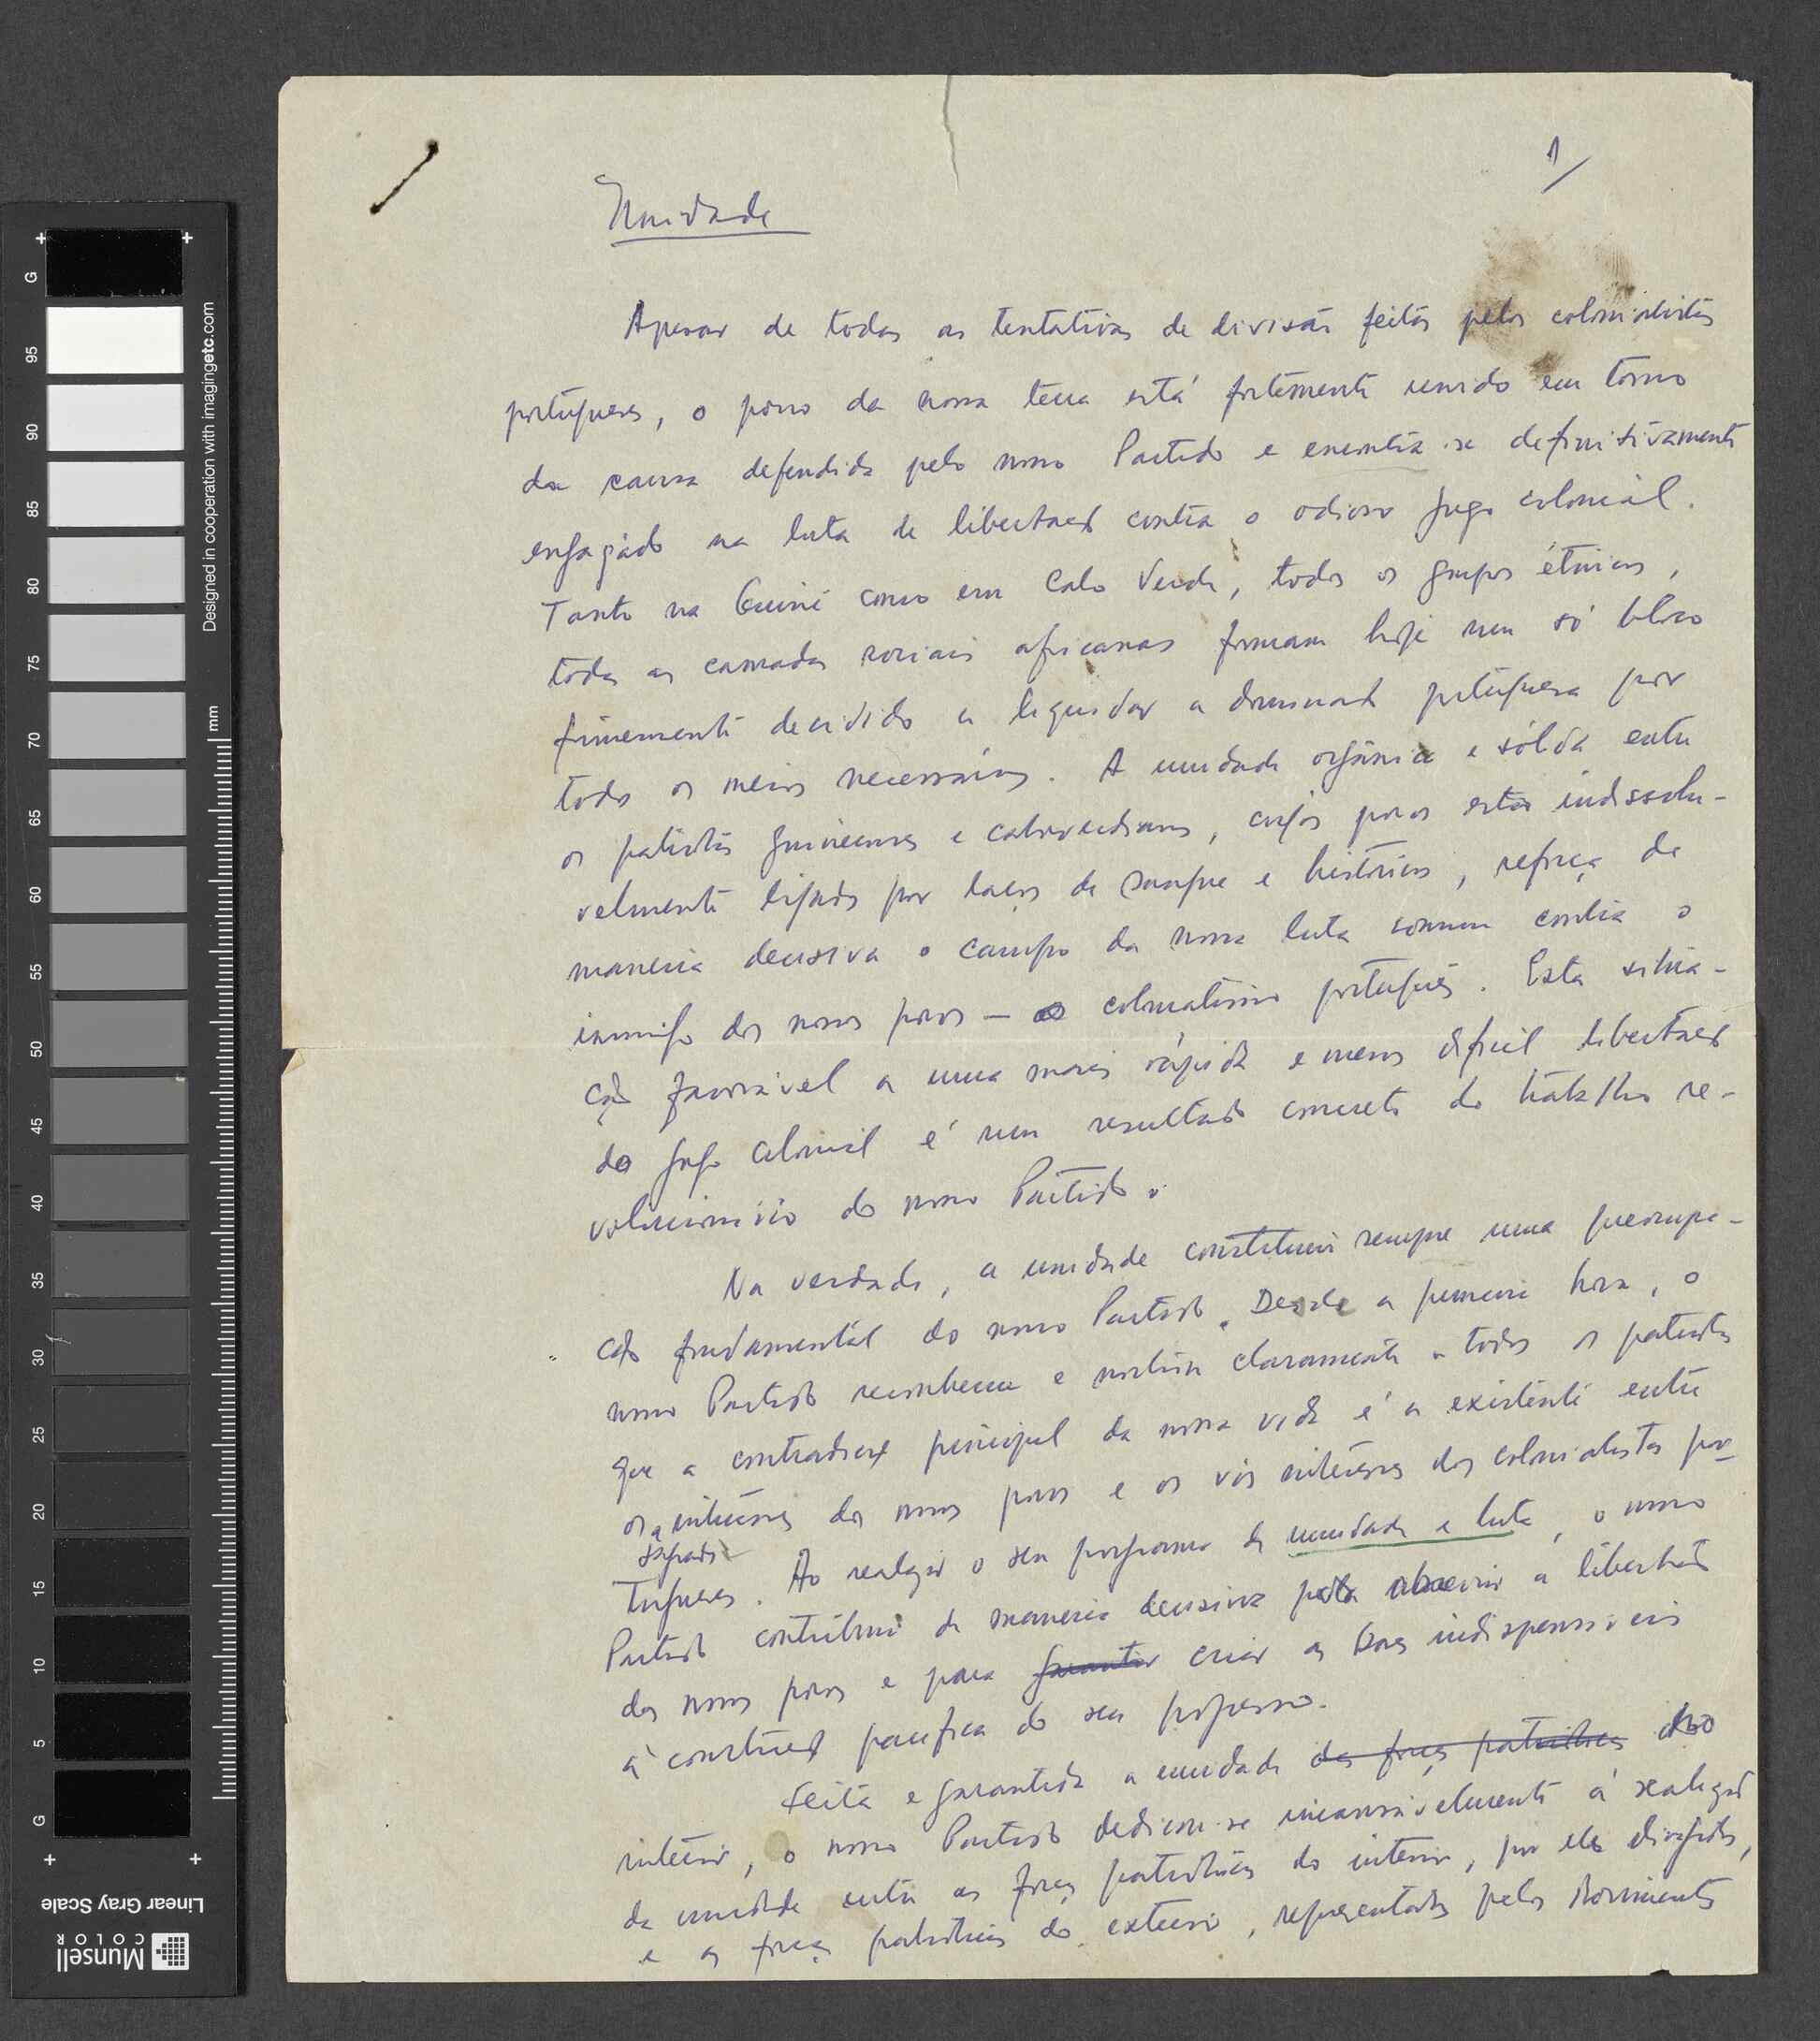 1/
Unidade
Apesar de todas as tentativas de divisão feitas pelos colonialistas
portugueses, o povo da nossa terra está fortemente unido em torno
da causa defendida pelo nosso Partido e encontra-se definitivamente
engajado na luta de libertação contra o odioso jugo colonial.
Tanto na Guiné como em Cabo Verde, todos os grupos étnicos,
todas as camadas sociais africanas formam hoje um só bloco
firmemente decidido a liquidar a dominação portuguesa por
todos os meios necessários. A unidade orgânica e sólida entre
os patriotas guineenses e caboverdianos, cujos povos estão indissolu-
velmente ligados por laços de sangue e históricos, reforça de
maneira decisiva o campo da nossa luta comum contra o
inimigo dos nossos povos — o colonialismo português. Esta situa-
ção favorável a uma mais rápida e menos difícil libertação
do jugo colonial é um resultado concreto do trabalho re-
volucionário do nosso Partido.
Na verdade, a unidade constituiu sempre uma preocupa-
ção fundamental do nosso Partido. Desde a primeira hora, o
nosso Partido reconheceu e mostrou claramente a todos os patriotas
que a contradição principal da nossa vida é a existente entre
os interesses dos nossos povos e os vis interesses dos colonialistas por-
sagrados
tugueses. Ao realizar o seu programa de unidade e luta, o nosso
Partido contribuiu de maneira decisiva para a libertação
dos nossos povos e para garantir criar as bases indispensáveis
à construção pacífica do seu progresso.
Feita e garantida a unidade das forças patrióticas no
interior, o nosso Partido dedicou-se incansàvelmente à realização
da unidade entre as forças patrióticas do interior, por ele dirigidas,
e as forças patrióticas do exterior, representadas pelos Movimentos
Designed in cooperation with imagingetc.com
mm
G
95
90
85
80
75
70
65
60
55
50
45
40
35
30
25
20
15
10
5
G
Linear Gray Scale
Munsell
COLOR